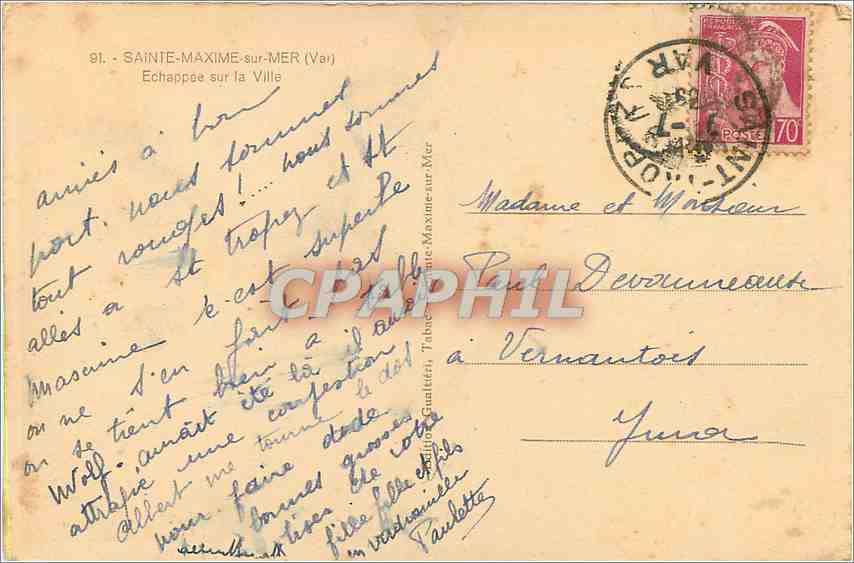 91. - SAINTE-MAXIME-sur-MER (Var)
Echappée sur la Ville
arrivés à bon
port. nous sommes
tout rouges! .... nous sommes
allés a st tropez et st
maxime c'est superbe
on ne s'en fait pas
on se tient bien à table
Wolf. aurait été là il aurait
attrapé une congestion
Albert me tourne le dos
pour faire dodo
bonnes grosses
bises de votre
fille fille et fils
en vadrouille
Paulette
Editions Gualtiéri, Tabac Sainte-Maxime-sur-Mer
REPUBLIQUE FRANÇAISE
POSTES
70c
SAINT-TROPEZ
VAR
Madame et Monsieur
Paul
à Vernantois
Jura
CPAPHIL